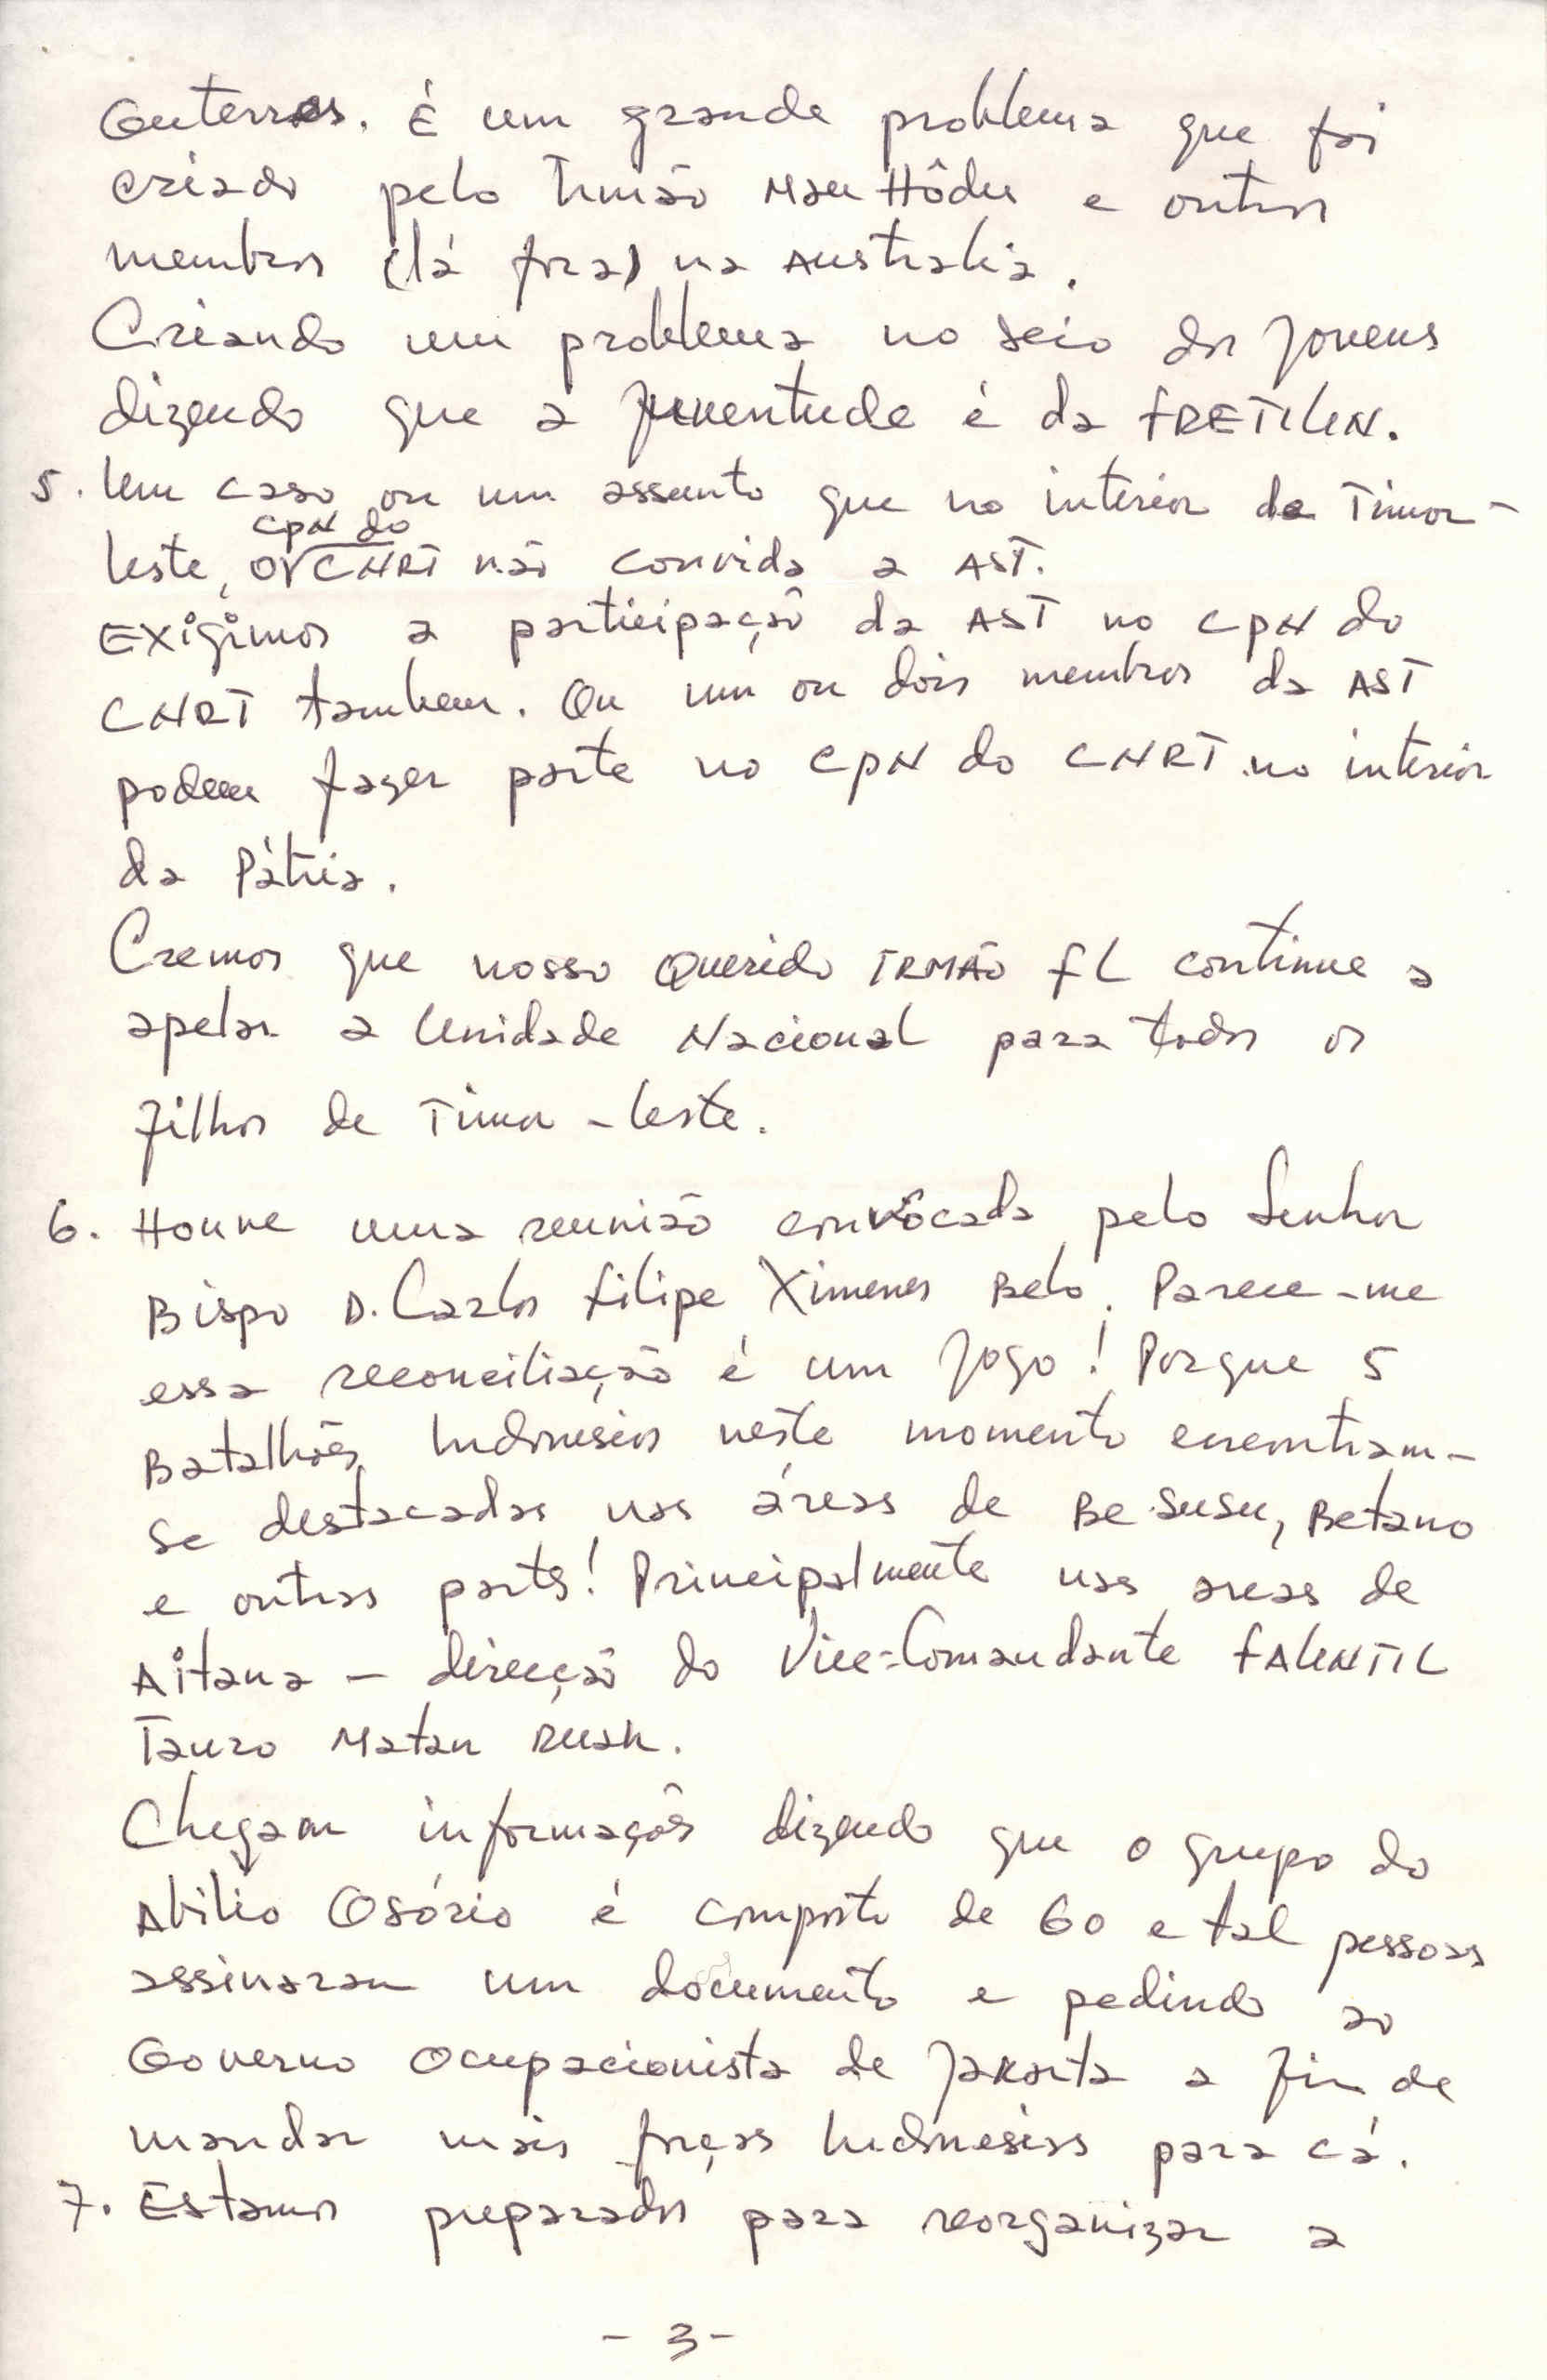 Guterres. É um grande problema que foi
criado pelo Irmão Mau Hôdu e outros
membros (lá fora) na Australia.
Criando um problema no seio dos jovens
dizendo que a Juventude é da FRETILIN.
5. Um caso ou um assunto que no interior de Timor-
Leste, o CPN do CNRT não convida a AST.
Exigimos a participação da AST no CPN do
CNRT tambem. Ou um ou dois membros da AST
podem fazer parte no CPN do CNRT no interior
da Pátria.
Cremos que nosso Querido IRMÃO FL continue a
apelar a Unidade Nacional para todos os
filhos de Timor-Leste.
6. Houve uma reunião convocada pelo Senhor
Bispo D. Carlos Filipe Ximenes Belo. Parece-me
essa reconciliação é um jogo! Porque 5
Batalhões Indonésios neste momento encontram-
se destacadas nas áreas de Be-Susu, Betano
e outras partes! Principalmente nas areas de
Aitana - direcção do Vice-Comandante FALINTIL
Tauro Matan Ruak.
Chegam informações dizendo que o grupo do
Abilio Osório é composto de 60 e tal pessoas
assinaram um documento e pedindo ao
Governo Ocupacionista de Jakarta a fim de
mandar mais forças Indonésias para cá.
7. Estamos preparados para reorganizar a
- 3 -